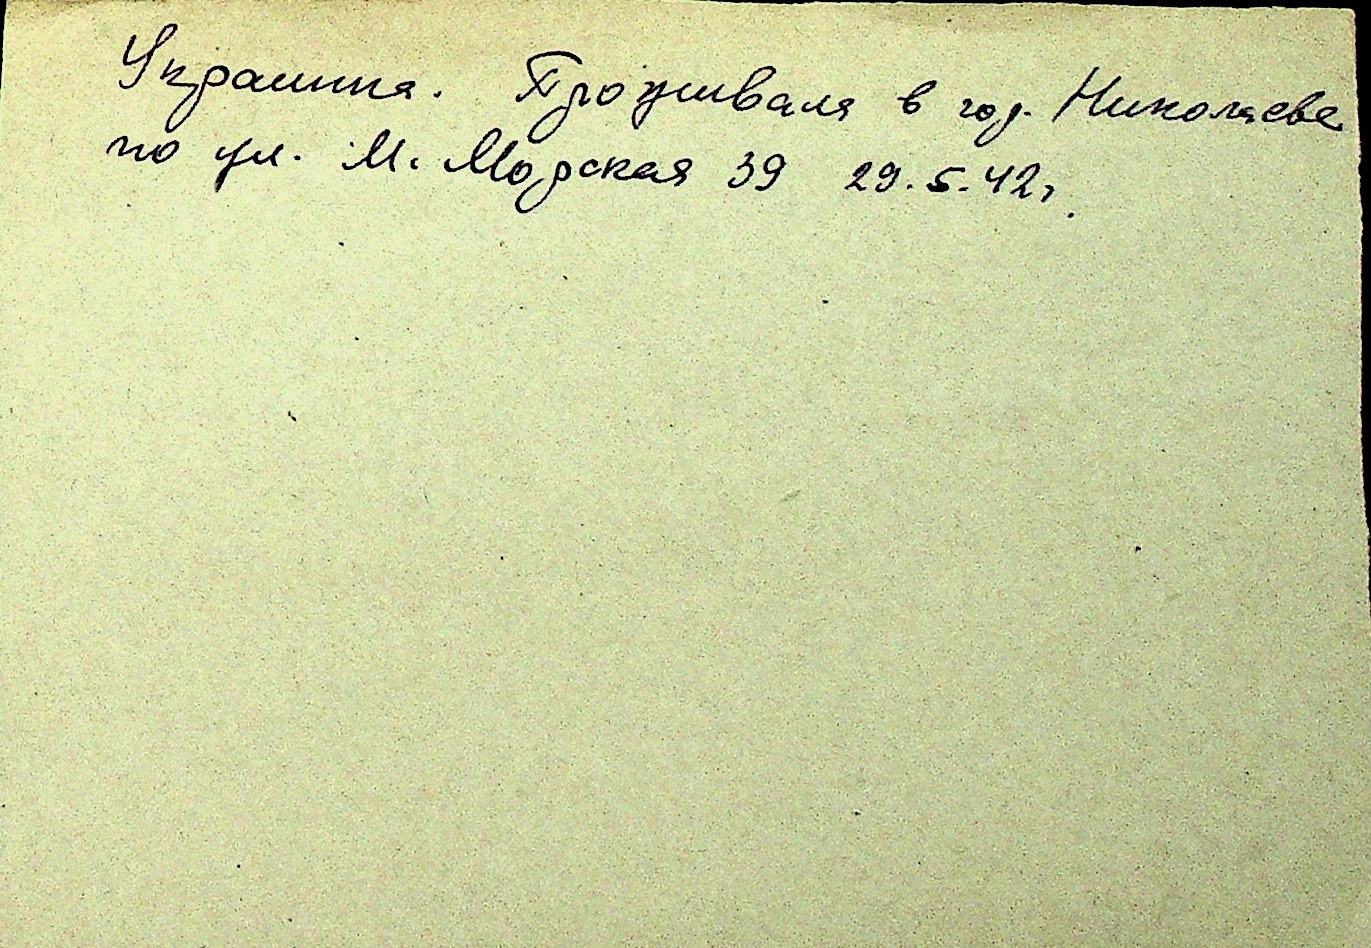 Украинка. Проживала в гор. Николаеве
по ул. М. Морская 39 29.5.42г.